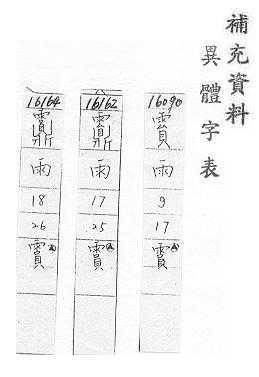 補充資料
異體字表
16090
雨
9
17
霣Ⓐ
16162
雨
17
25
霣Ⓐ
16164
雨
18
26
霣Ⓐ